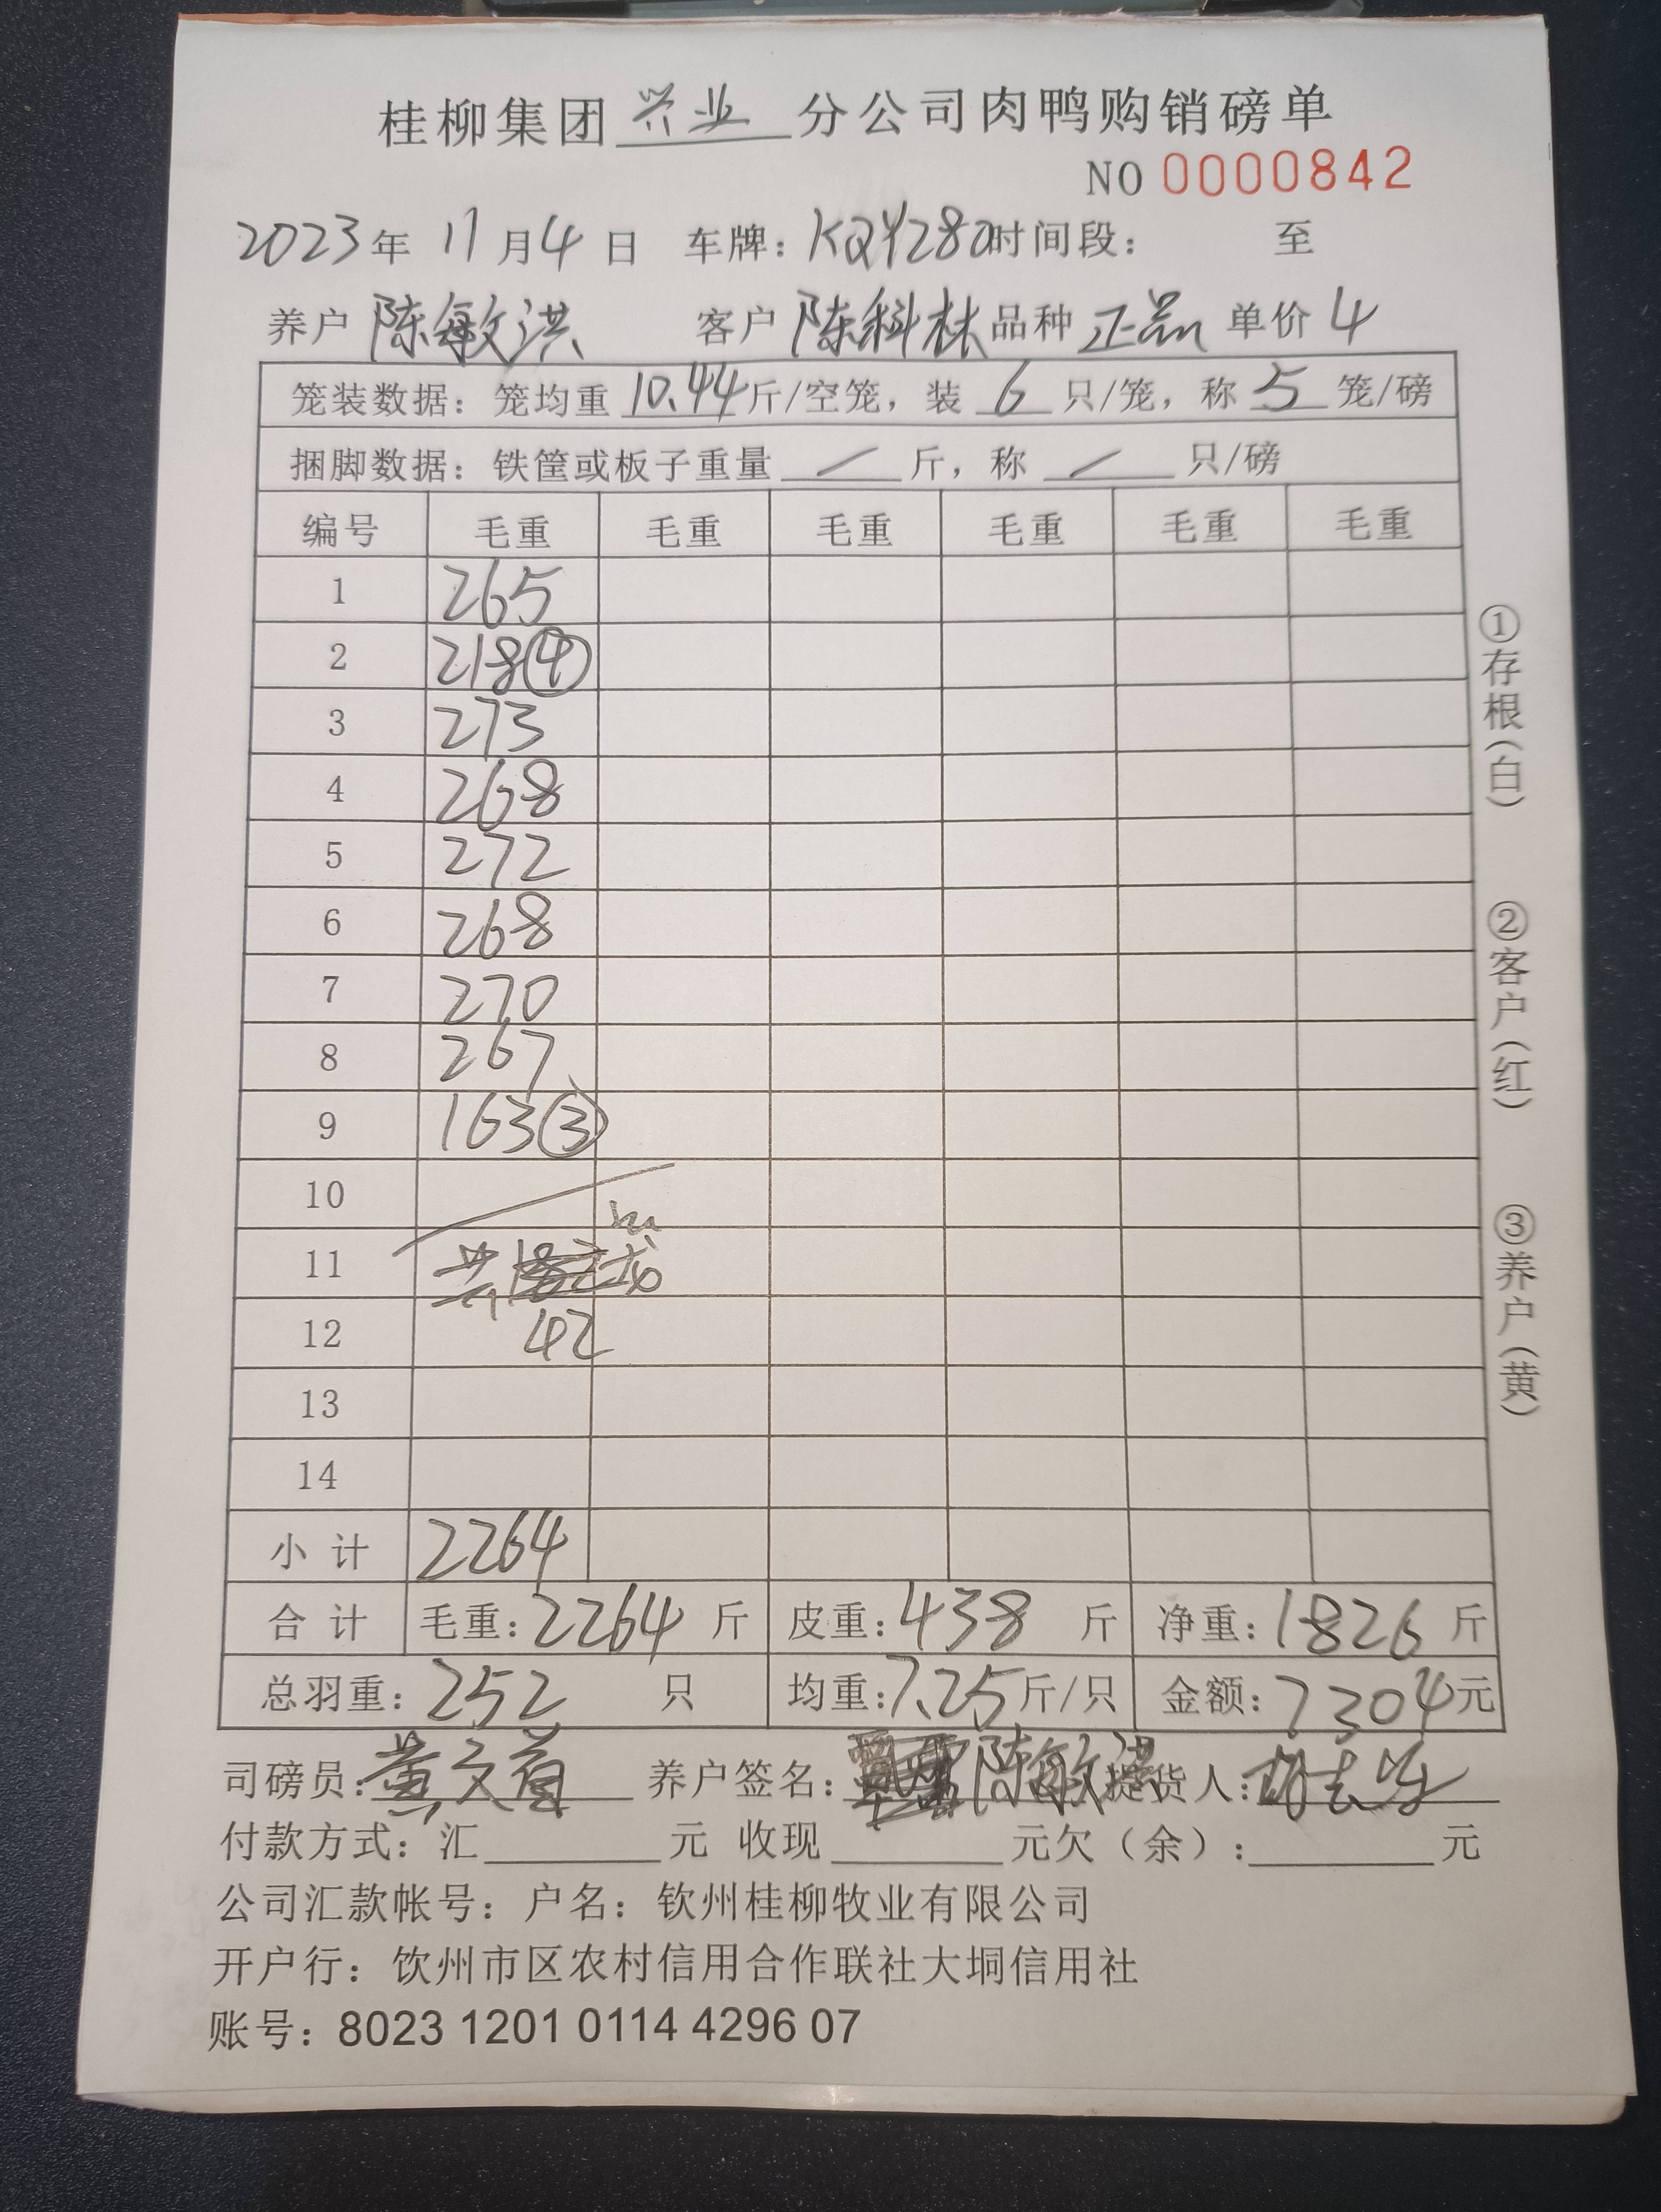 桂柳集团兴业分公司肉鸭购销磅单
NO 0000842
2023年 11月4日 车牌：KQY280时间段： 至
养户 陈敏洪 客户 陈科林 品种 正品 单价 4
笼装数据：笼均重 10.44 斤/空笼，装 6 只/笼，称 5 笼/磅
捆脚数据：铁筐或板子重量 / 斤，称 / 只/磅
编号 毛重 毛重 毛重 毛重 毛重 毛重
1 265
2 218④
3 273
4 268
5 272
6 268
7 270
8 267
9 163③
10
11 共 笼
12 42
13
14
小计 2264
合计 毛重：2264 斤 皮重：438 斤 净重：1826 斤
总羽重：252 只 均重：7.25 斤/只 金额：7304元
司磅员：黄文首 养户签名：陈敏洪 提货人：
付款方式：汇 元 收现 元欠（余）： 元
公司汇款帐号：户名：钦州桂柳牧业有限公司
开户行：饮州市区农村信用合作联社大垌信用社
账号：8023 1201 0114 4296 07
①存根（白）
②客户（红）
③养户（黄）